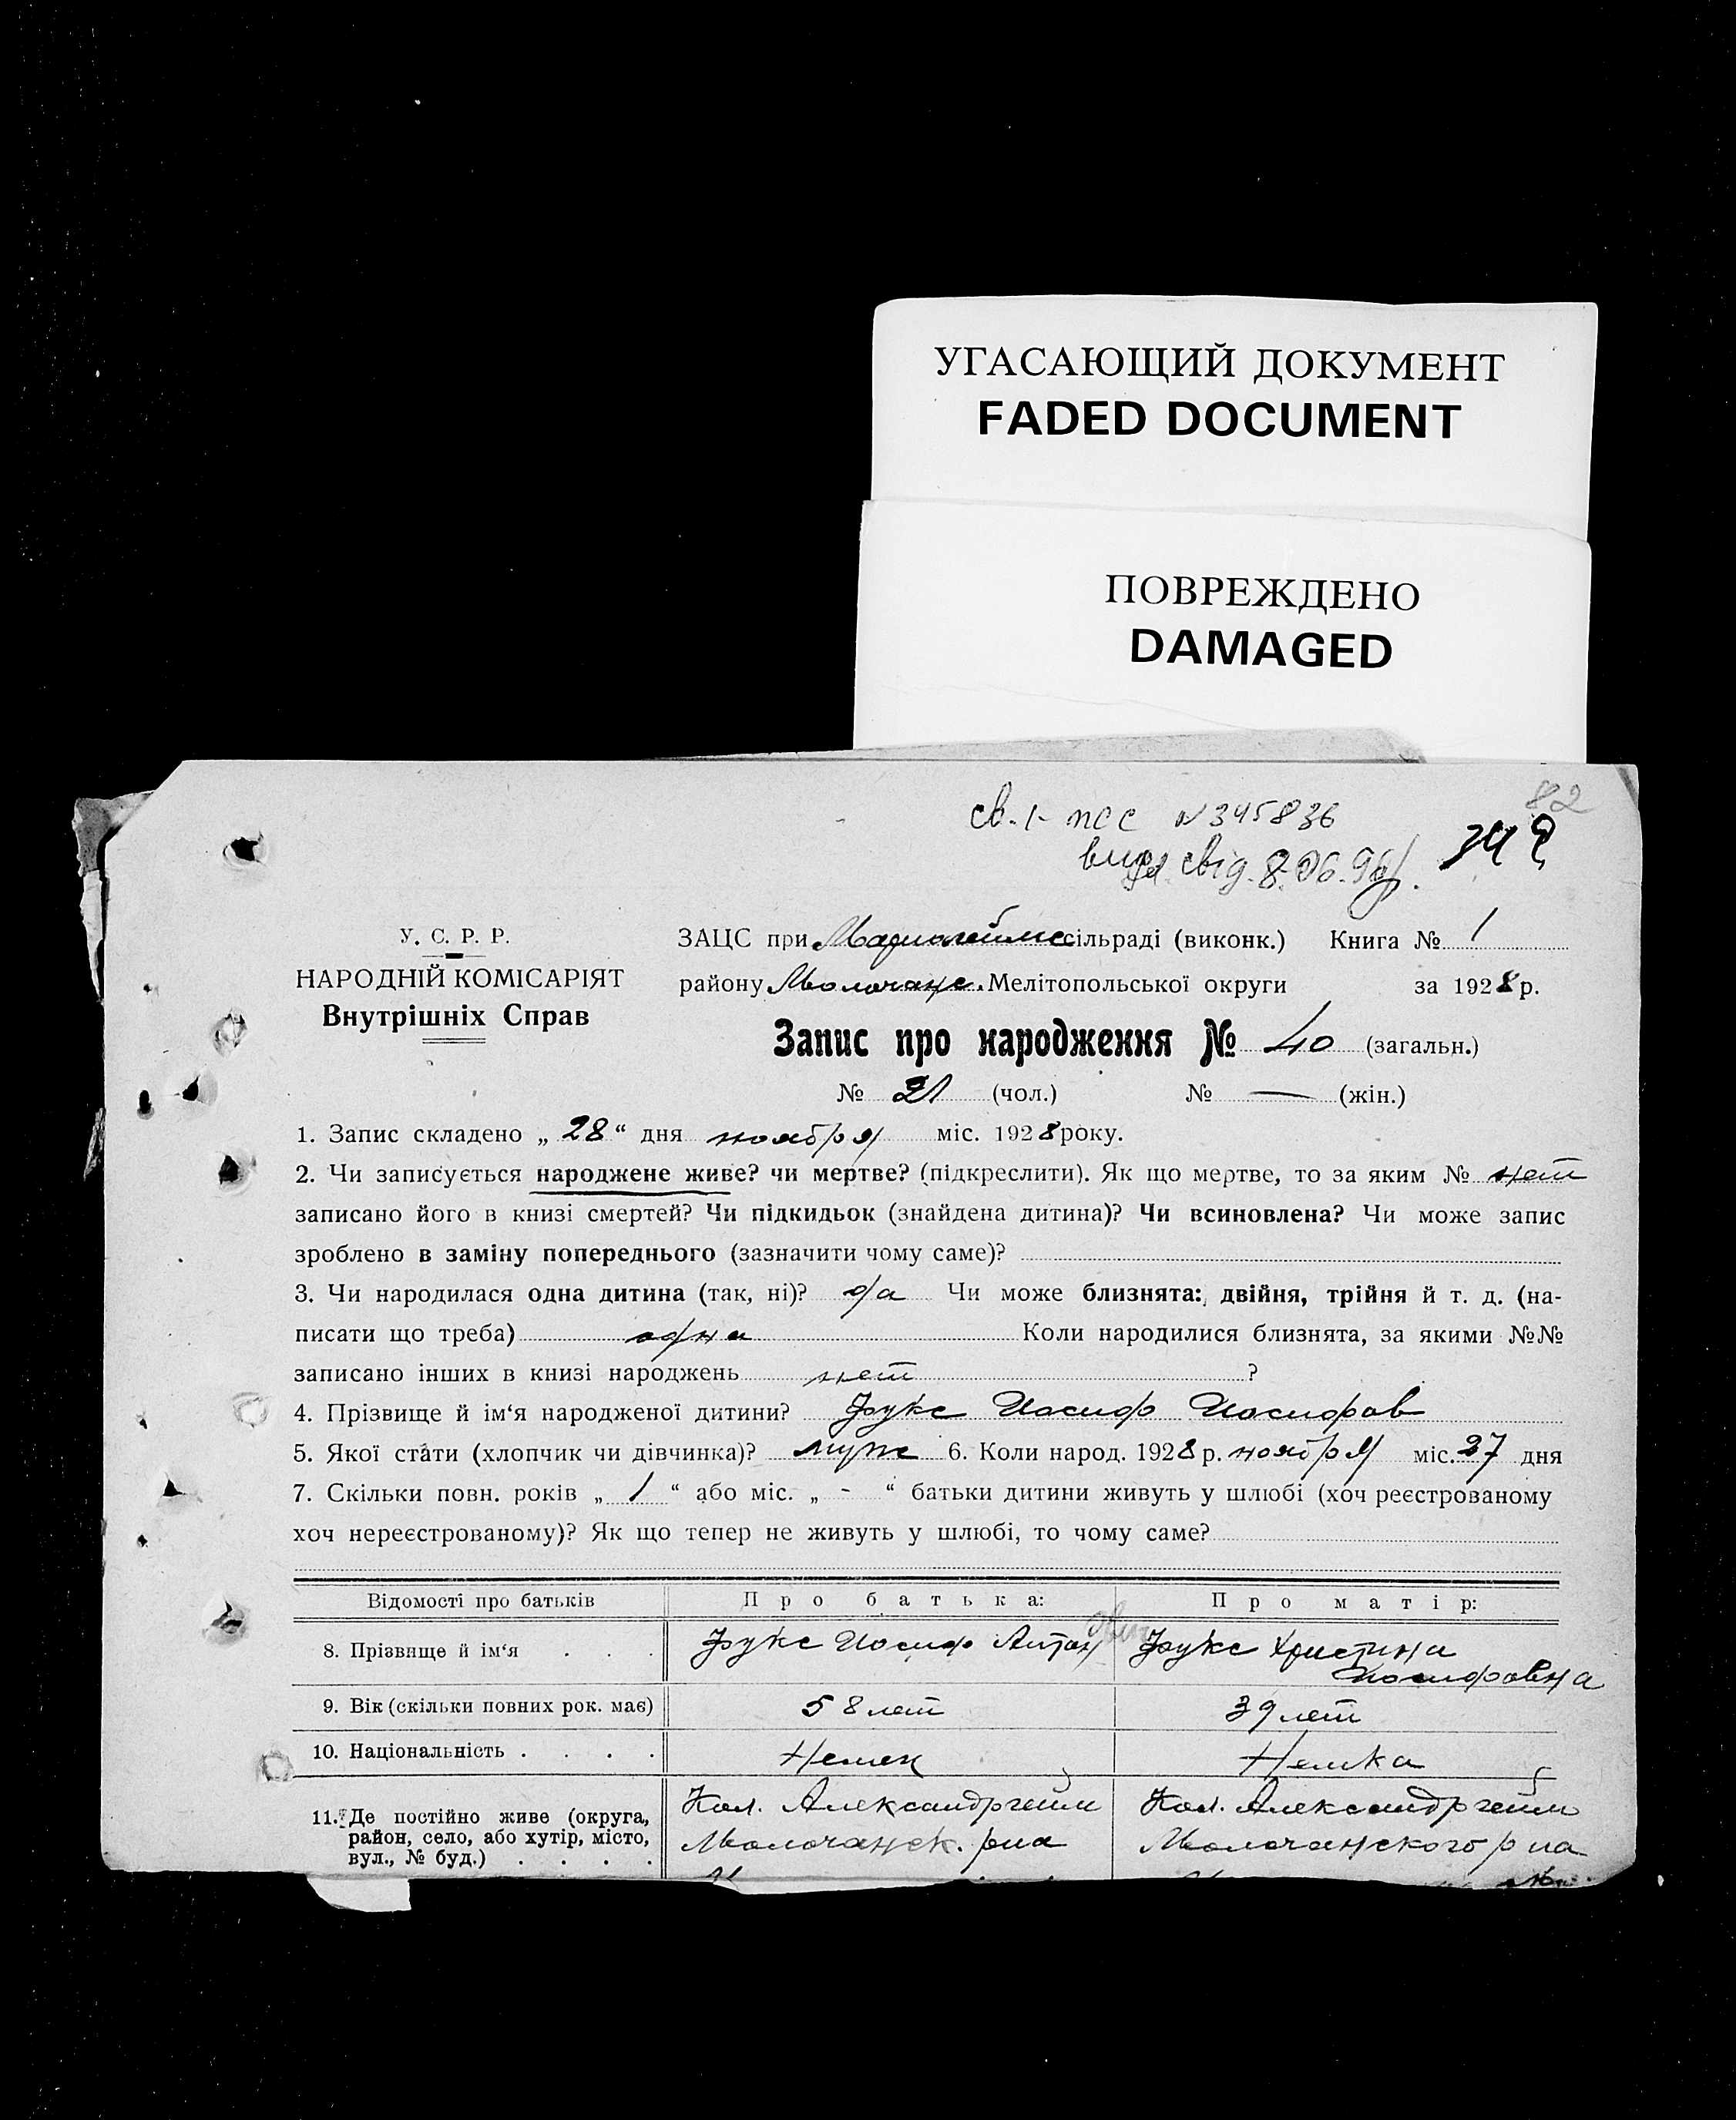 УГАСАЮЩИЙ ДОКУМЕНТ
FADED DOCUMENT
ПОВРЕЖДЕНО
DAMAGED
82
св. 1- ПСС N 345836
свід. 8.06.96
У. С. Р. Р.
НАРОДНІЙ КОМІСАРІЯТ
Внутрішніх Справ
ЗАЦС при Мариогеймс сільраді (виконк.) Книга № 1
району Молочанс. Мелітопольської округи за 1928 р.
Запис про народження № 40 (загальн.)
№ 21 (чол.) № — (жін.)
1. Запис складено „ 28 “ дня ноября міс. 1928 року.
2. Чи записується народжене живе? чи мертве? (підкреслити). Як що мертве, то за яким № нет
записано його в книзі смертей? Чи підкидьок (знайдена дитина)? Чи всиновлена? Чи може запис
зроблено в заміну попереднього (зазначити чому саме)?
3. Чи народилася одна дитина (так, ні)? да Чи може близнята: двійня, трійня й т. д. (на-
писати що треба) одна Коли народилися близнята, за якими №№
записано інших в книзі народжень нет ?
4. Прізвище й ім‘я народженої дитини? Фукс Иосиф Иосифов
5. Якої стати (хлопчик чи дівчинка)? муж 6. Коли народ. 1928 р. ноября міс. 27 дня
7. Скільки повн. років „ 1 “ або міс. „ - “ батьки дитини живуть у шлюбі (хоч реєстрованому
хоч нереєстрованому)? Як що тепер не живуть у шлюбі, то чому саме?
Відомості про батьків Про батька: Про матір:
8. Прізвище й ім‘я . . . Фукс Иосиф Антон ович Фукс Христина
Иосифовна
9. Вік (скільки повних рок. має) 58 лет 39 лет
10. Національність . . . . Немец Немка
11. Де постійно живе (округа, Кол. Александргейм Кол. Александргейм
район, село, або хутір, місто, Молочанск. р на Молочанского р на
вул., № буд.) . . . .